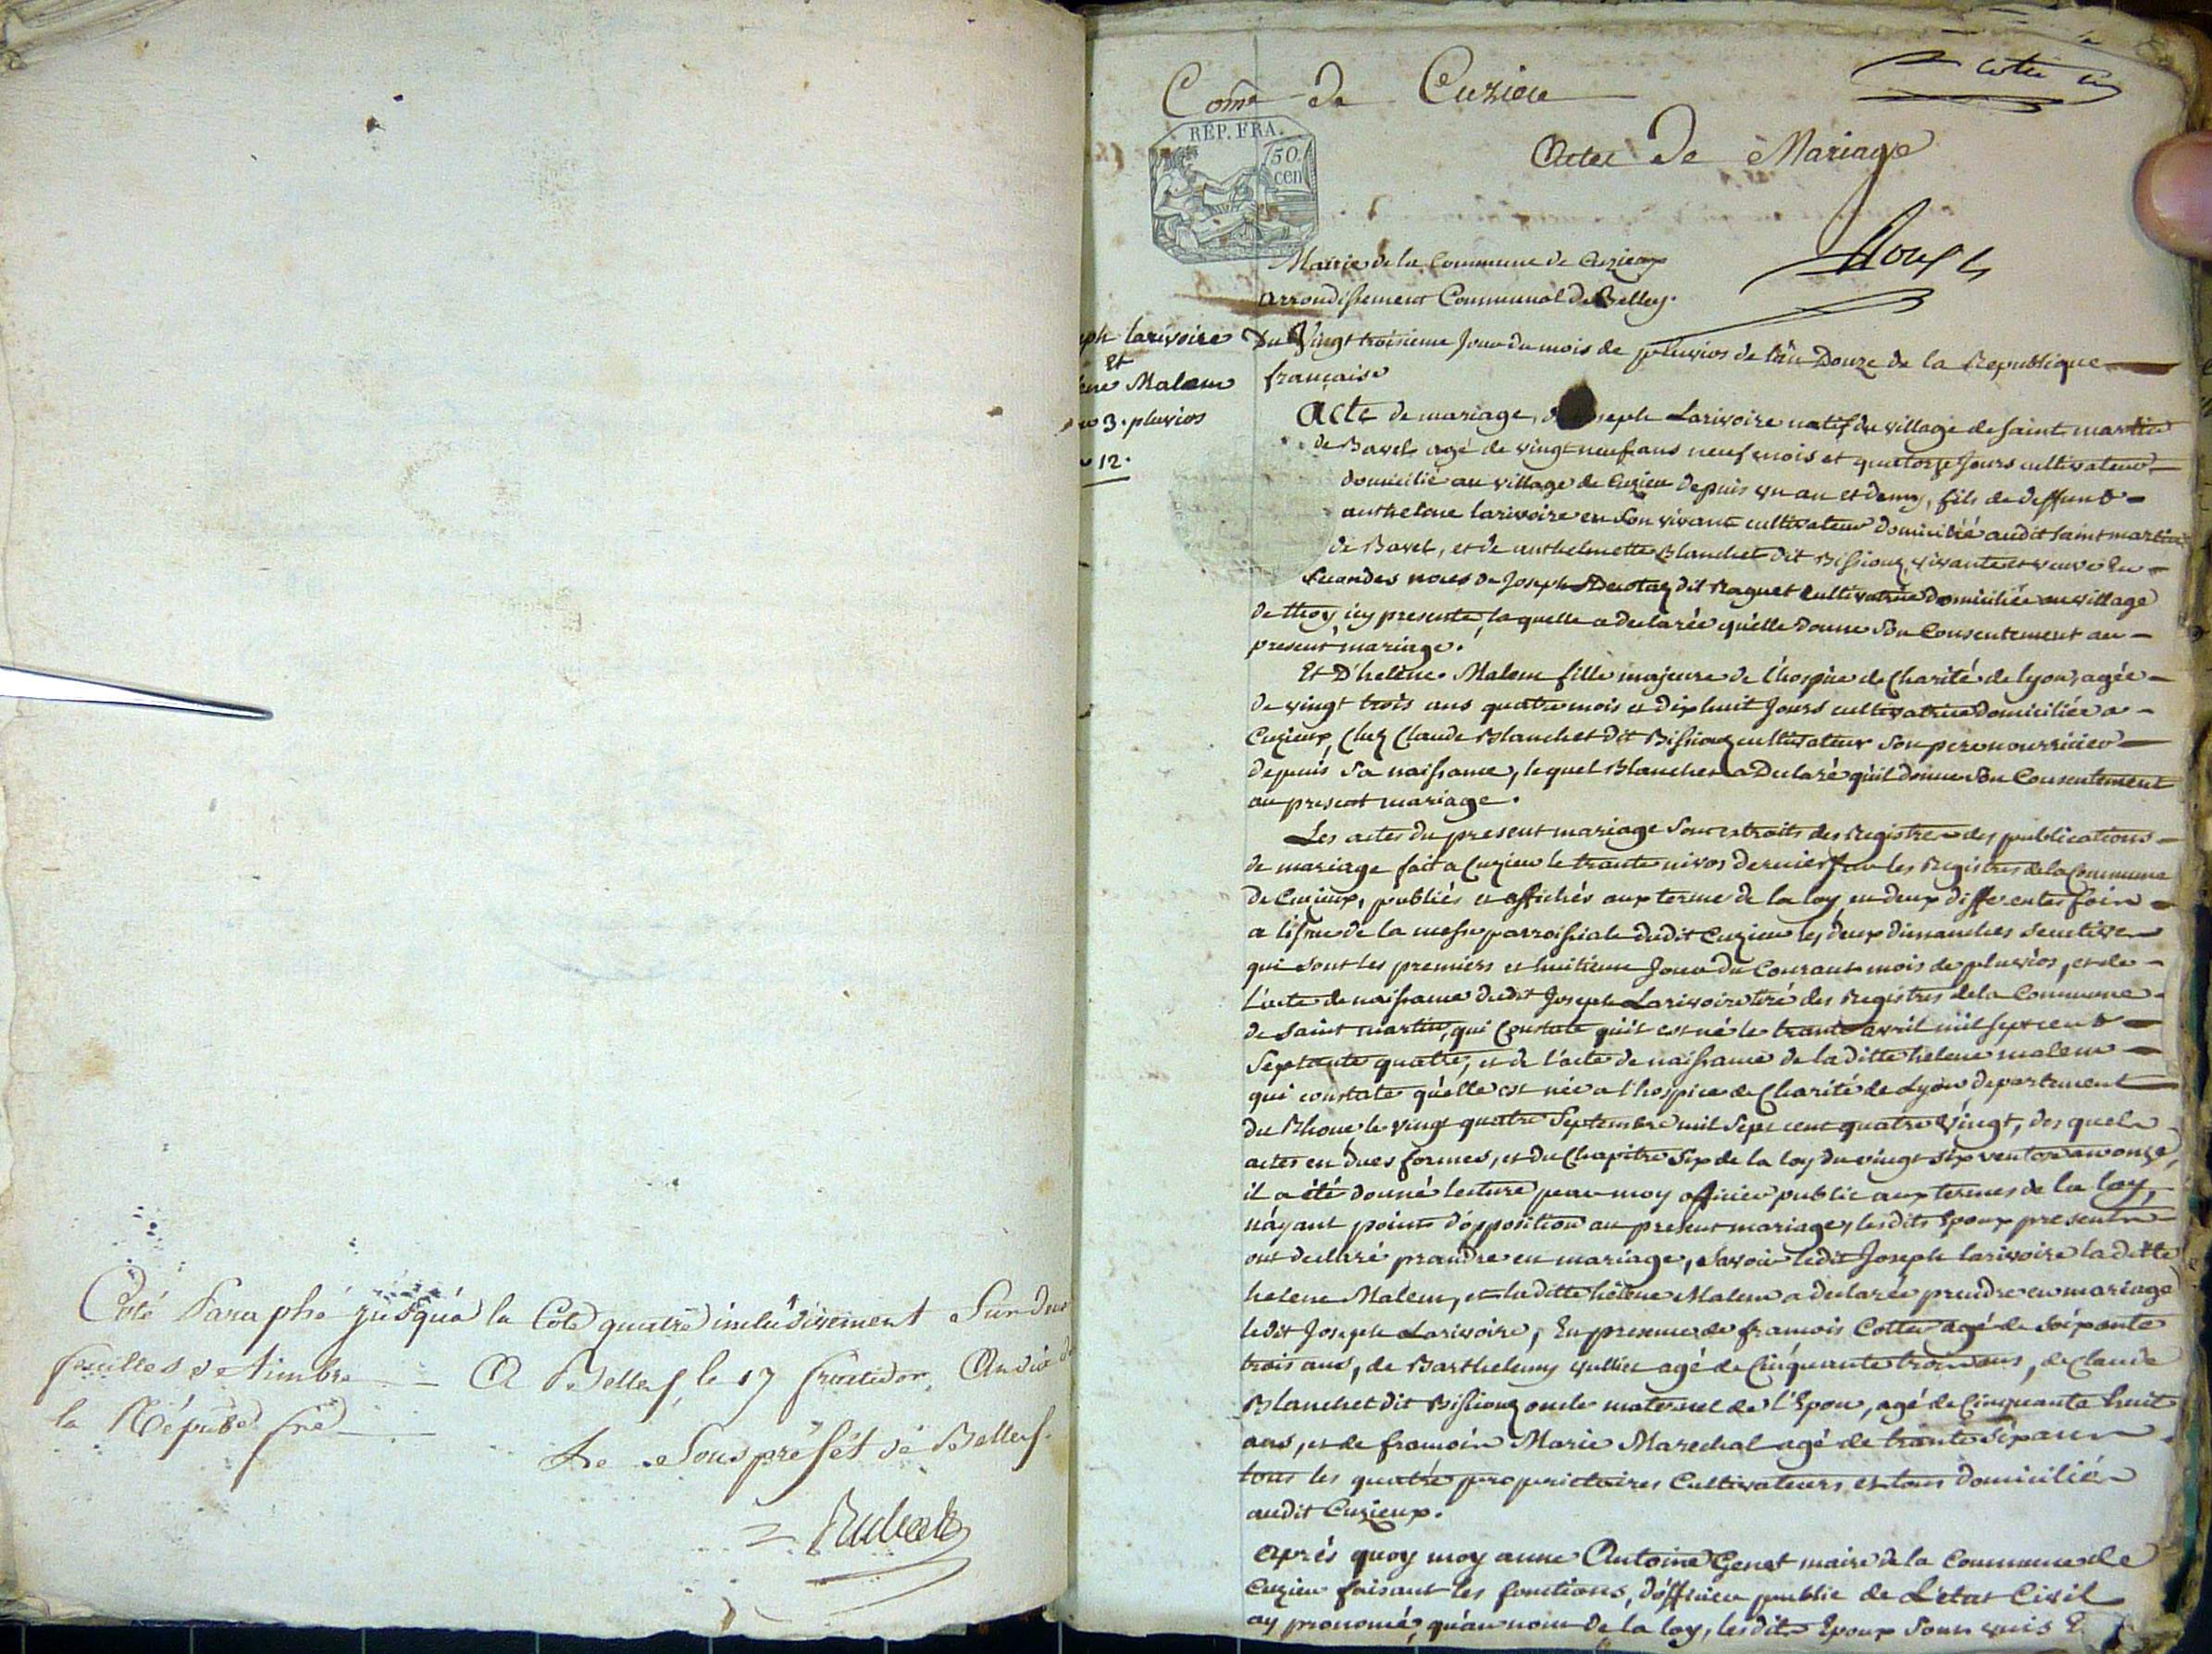 Coté Paraphé jusqu'a la Cote quatre inclusivement Sur deux
feuilles de timbre — A Belley, le 17 fructidor, An dix de
la Répub. frse
Le Sous préfét de Belley.
Com.e de Cuzieu
Actes de Mariage
RÉP. FRA.
50.
cen
Mairie de la Commune de Cuzieux
arrondissement Communal de Belley.
ph larivoire
Et
ene Malem
3. pluvios
12.
Du Vingt troisieme Jour du mois de pluvios de l'an Douze de la Republique
française
Acte de mariage, de Joseph Larivoire natif du village de saint martin
de Bavel agé de vingt neuf ans neuf mois et quatorze Jours cultivateur
domicilié au village de Cuzieu depuis un an et demy, fils de deffunt
anthelme larivoire en son vivant cultivateur domicilié audit saint martin
de Bavel, et de anthelmette Blanchet dit Bissiouz, vivante et veuve en
secondes noces de Joseph Decotaz dit Raguet cultivatrice domiciliée au village
de thoy icy presente, laquelle a declarée qu'elle donne son Consentement au
present mariage.
Et D'helène Malem fille majeure de l'hospice de Charité de lyon, agée
de vingt trois ans quatre mois et dix huit Jours cultivatrice domiciliée a
Cuzieux, Chez Claude Blanchet dit Bissiouz cultivateur son pere nourricier
depuis sa naissance, lequel Blanchet a Declaré qu'il donne son Consentement
au present mariage.
Les actes du present mariage sont extraits des Registres des publications
de mariage fait a Cuzieu le trante nivos dernier sur les Registres de la Commune
de Cuzieux, publiés et affichés aux terme de la loy en deux differentes fois
a lissue de la messe parroissiale dudit Cuzieu les deux dimanches
qui sont les premiers et huitieme Jour du Courant mois de pluvios, et de
l'acte de naissance dudit Joseph Larivoire tiré des Registres de la Commune
de saint martin, qui Constate qu'il est né le trante avril mil sept cent
septante quatre, et de l'acte de naissance de la ditte helene malem
qui constate qu'elle est née a l'hospice de Charité de Lyon departement
du Rhone le vingt quatre Septembre mil sept cent quatre vingt, des quels
actes en dues formes, et du Chapitre six de la loy du vingt six ventose an onze,
il a été donné lecture par moy officier public aux termes de la loy,
n'ayant point d'opposition au present mariage, lesdits Epoux presents
ont declaré prandre en mariage, savoir ledit Joseph larivoire la ditte
helene Malem, et la ditte hélène Malem a declarée prendre en mariage
ledit Joseph Larivoire, En presence de francois Cottin agé de soixante
trois ans, de Barthelemy vullier agé de Cinquante trois ans, de Claude
Blanchet dit Bissiouz oncle maternel de l'Epoux, agé de Cinquante huit
ans, et de francois Marie Marechal agé de trante six ans
tous les quatre proprietaires Cultivateurs et tous domiciliés
audit Cuzieux.
Après quoy moy anne Antoine Genet maire de la Commune de
Cuzieu faisant les fonctions, d'officier public de L'état Civil
ay prononcé, qu'au nom de la loy, lesdits Epoux sont unis